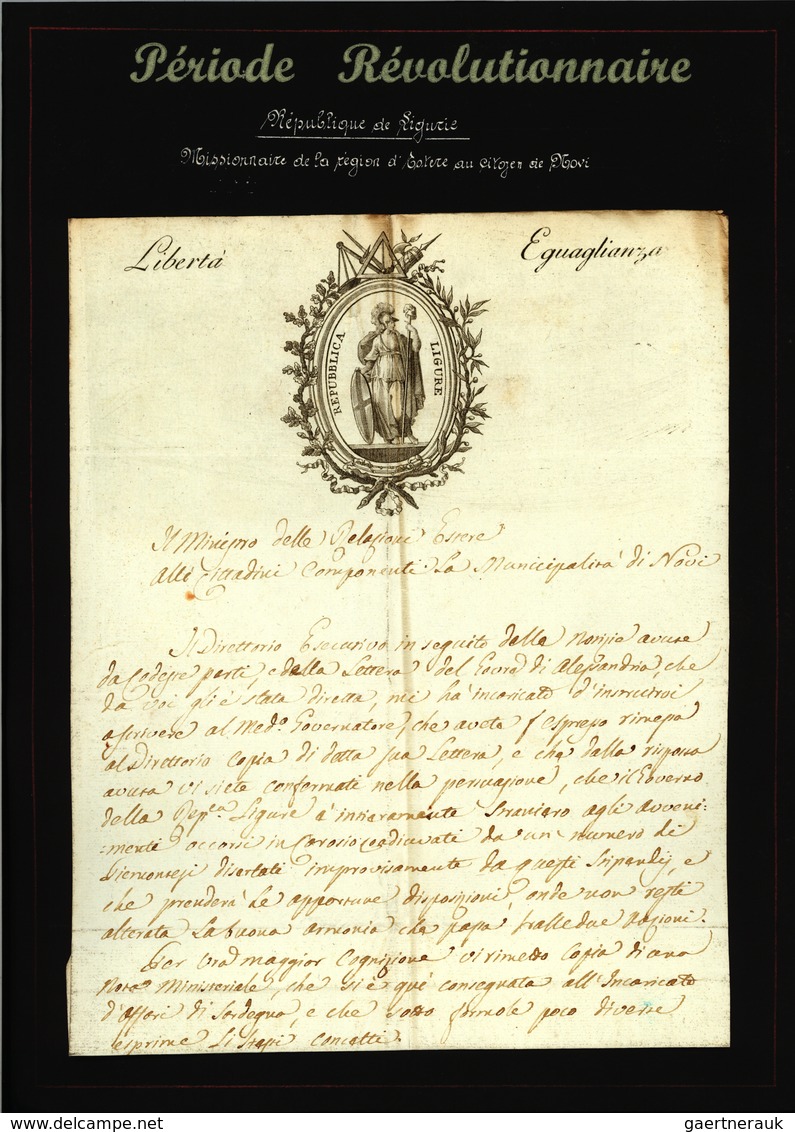 Période Révolutionnaire
République de Ligurie
Missionnaire de la région d'Estere au citozen de Novi
Libertà
Eguaglianza
REPUBBLICA LIGURE
Il Ministro delle Relazioni Estere
Alli Cittadini Componenti La Municipalità di Novi
Il Direttorio Esecutivo in seguito delle Notizie avute
da Codeste parti, e della Lettera del Govre di Alessandria, che
da voi gli è stata diretta, mi hà incaricato d'instruirvi
a scrivere al Medo Governatore, che avete espresso rimessa
al Direttorio Copia di detta sua Lettera, e che dalla risposta
avuta vi siete confermati nella persuasione, che il Governo
della Repca Ligure è intieramente straniero agli avveni=
=menti occorsi in Carosio coadiuvati da un numero di
Piemontesi disertati improvisamente da questi Stipendj, e
che prenderà le opportune disposizioni, onde non resti
alterata La buona armonia che passa fralle due Nazioni.
Per vra maggior Cognizione vi rimetto Copia di una
Nota Ministeriale, che si è quì consegnata all'Incaricato
d'Affari di Sardegna, e che sotto formole poco diverse
esprime Li stessi Concetti.
delcampe.net
gaertnerauk